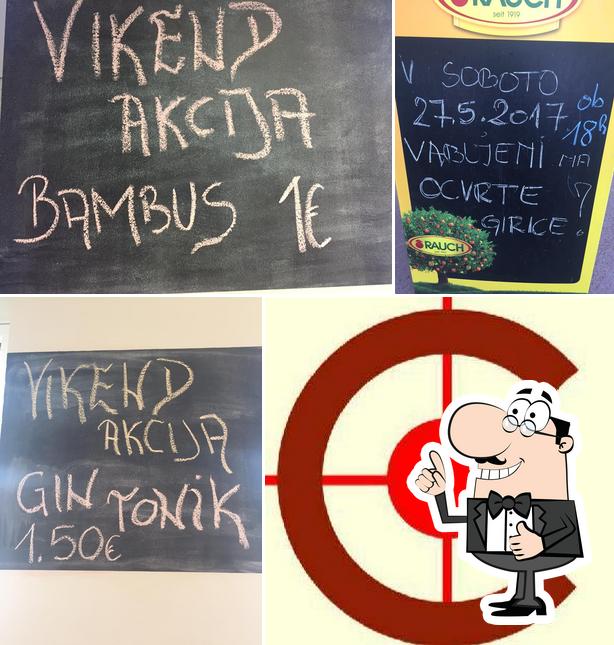 VIKEND
AKCIJA
BAMBUS 1€
RAUCH
seit 1919
V SOBOTO
27.5.2017 ob
18h
VABLJENI NA
OCVRTE
GIRICE!
RAUCH
VIKEND
AKCIJA
GIN TONIK
1.50€